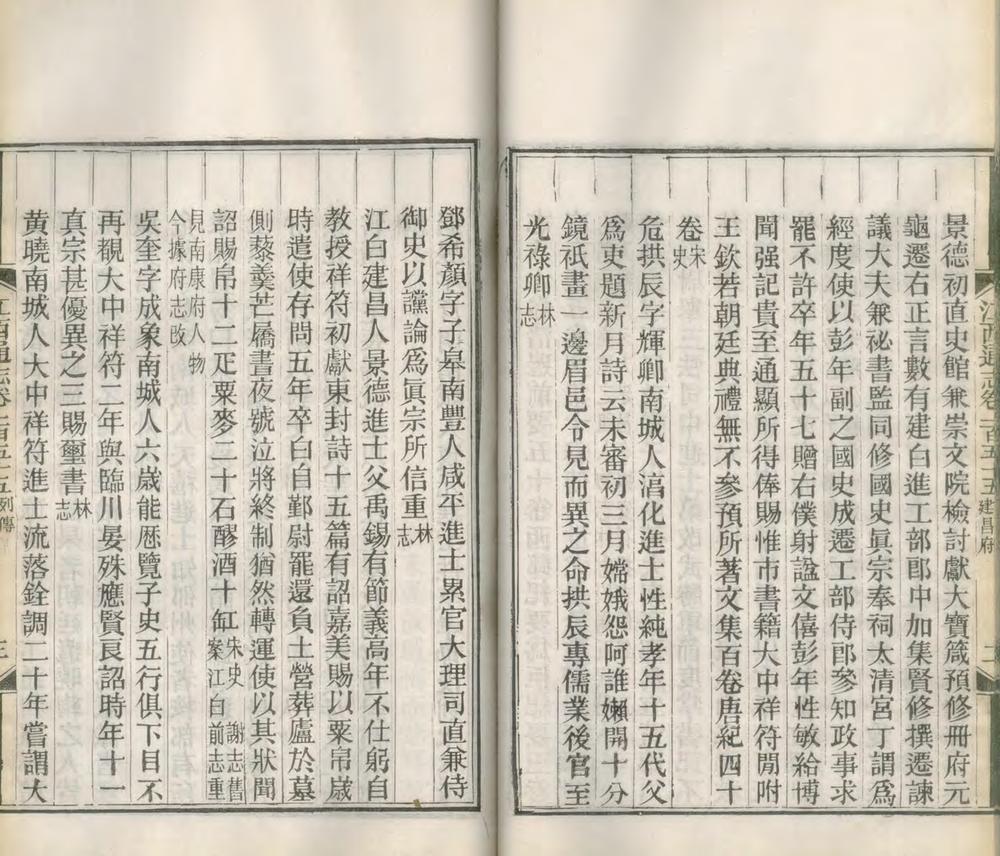 景德初直史館兼崇文院檢討獻大寶箴預修冊府元
龜遷右正言數有建白進工部郎中加集賢修撰遷諫
議大夫兼祕書監同修國史眞宗奉祠太清宮丁謂爲
經度使以彭年副之國史成遷工部侍郎參知政事求
罷不許卒年五十七贈右僕射諡文僖彭年性敏給博
聞强記貴至通顯所得俸賜惟市書籍大中祥符閒附
王欽若朝廷典禮無不參預所著文集百卷唐紀四十
卷宋史
危拱辰字輝卿南城人淳化進士性純孝年十五代父
爲吏題新月詩云未審初三月嫦娥怨阿誰嬾開十分
鏡祇畫一邊眉邑令見而異之命拱辰專儒業後官至
光祿卿林志
江西通志卷一百五十五建昌府 二
鄧希顏字子皋南豐人咸平進士累官大理司直兼侍
御史以讜論爲眞宗所信重林志
江白建昌人景德進士父禹錫有節義高年不仕躬自
教授祥符初獻東封詩十五篇有詔嘉美賜以粟帛歲
時遣使存問五年卒白自鄞尉罷還負土營葬廬於墓
側藜羹芒屩晝夜號泣將終制猶然轉運使以其狀聞
詔賜帛十二疋粟麥二十石醪酒十缸宋史 謝志舊案江白前志重
見南康府人物今據府志改
吳奎字成象南城人六歲能歷覽子史五行俱下目不
再覩大中祥符二年與臨川晏殊應賢良詔時年十一
真宗甚優異之三賜璽書林志
黄曉南城人大中祥符進士流落銓調二十年嘗謂大
江西通志卷一百五十五列傳 三